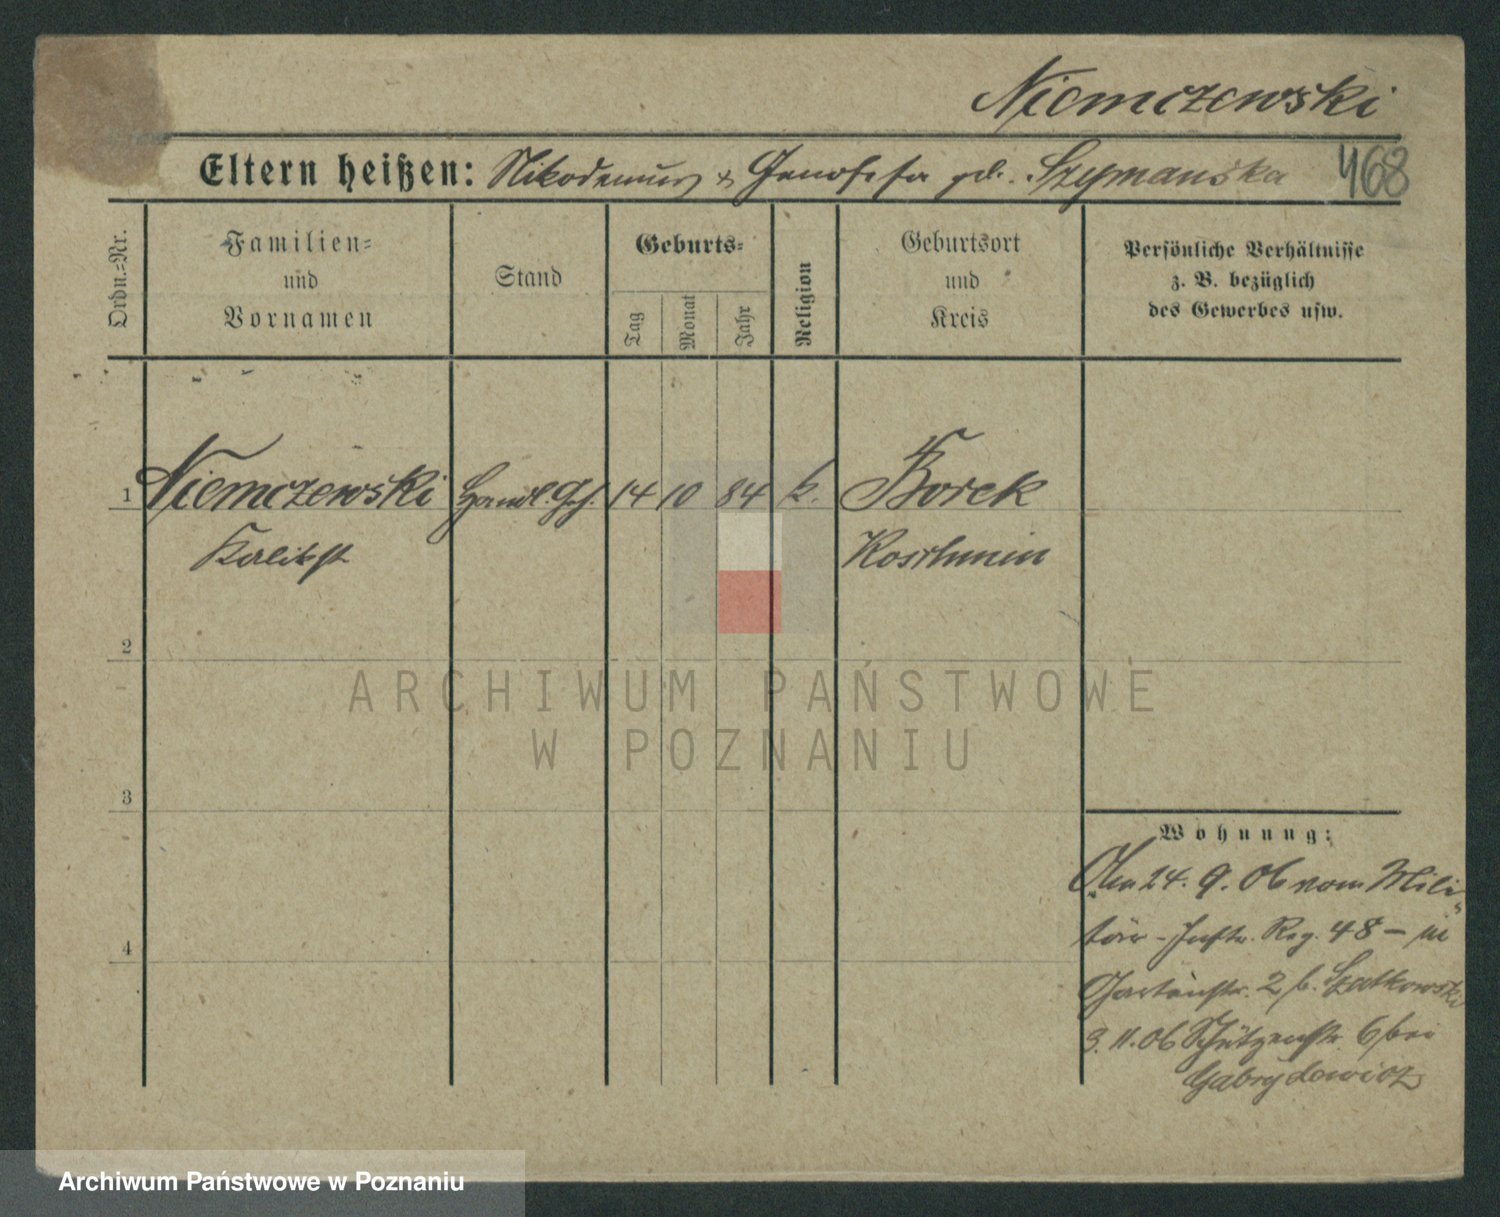 Niemczewski
Eltern heißen: Nikodemus & Genofefa gb. Szymanska 468
Ordn.=Nr.
Familien=
und
Vornamen
Stand
Geburts=
Tag
Monat
Jahr
Religion
Geburtsort
und
Kreis
Persönliche Verhältnisse
z. B. bezüglich
des Gewerbes usw.
1 Niemczewski Handl. Gh. 14 10 84 k. Borek
Kalikst Koschmin
2
3
4
Wohnung:
24. 9. 06 vom Mili-
tär - Inftr. Reg. 48 - in
Gartenstr. 2 b. Szatkowski
3. 11. 06 Schützenstr. 6 bei
Gabrylowicz
ARCHIWUM PAŃSTWOWE
W POZNANIU
Archiwum Państwowe w Poznaniu